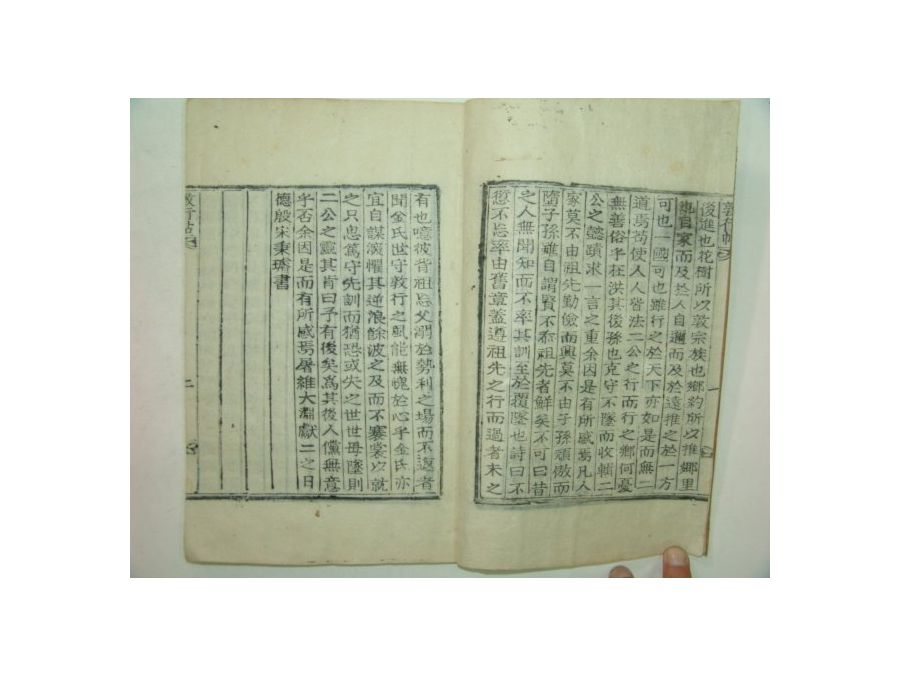 後進也花樹所以敦宗族也鄉約所以推鄉里
自家而及於人自邇而及於遠推之於一方
可也一國可也雖行之於天下亦如是而無二
道焉苟使人人皆法二公之行而行之鄉何憂
無善俗乎在洪其後孫也克守不墜而收輯二
公之懿蹟求一言之重余因是有所感焉凡人
家莫不由祖先勤儉而興莫不由子孫頑傲而
墮子孫雖自謂賢不忝祖先者鮮矣不可曰昔
之人無聞知而不率其訓至於覆墜也詩曰不
愆不忘率由舊章蓋遵祖先之行而過者未之
有也噫彼背祖忘父溺於勢利之場而不返者
聞金氏世守敦行之風能無愧於心乎金氏亦
宜自謀演懼其逆浪餘波之及而不褰裳以就
之只思篤守先訓而猶恐或失之世世毋墜則
二公之靈其肯曰予有後矣爲其後人儻無意
乎否余因是而有所感焉屠維大淵獻二之日
德殷宋秉璿書
敦行
二